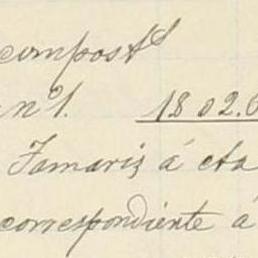 compost
n.º 1. 1802.6
Tamariz á cta
correspondiente á